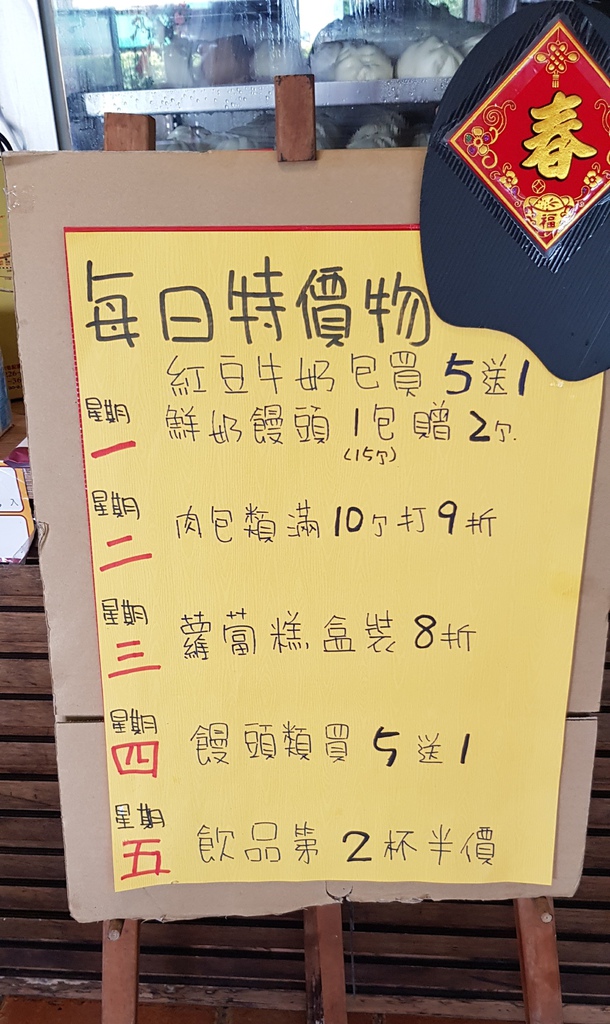 春
福
每日特價物
紅豆牛奶包買5送1
星期一
鮮奶饅頭1包贈2个.
(15个)
星期二
肉包類滿10个打9折
星期三
蘿蔔糕盒裝8折
星期四
饅頭類買5送1
星期五
飲品第2杯半價